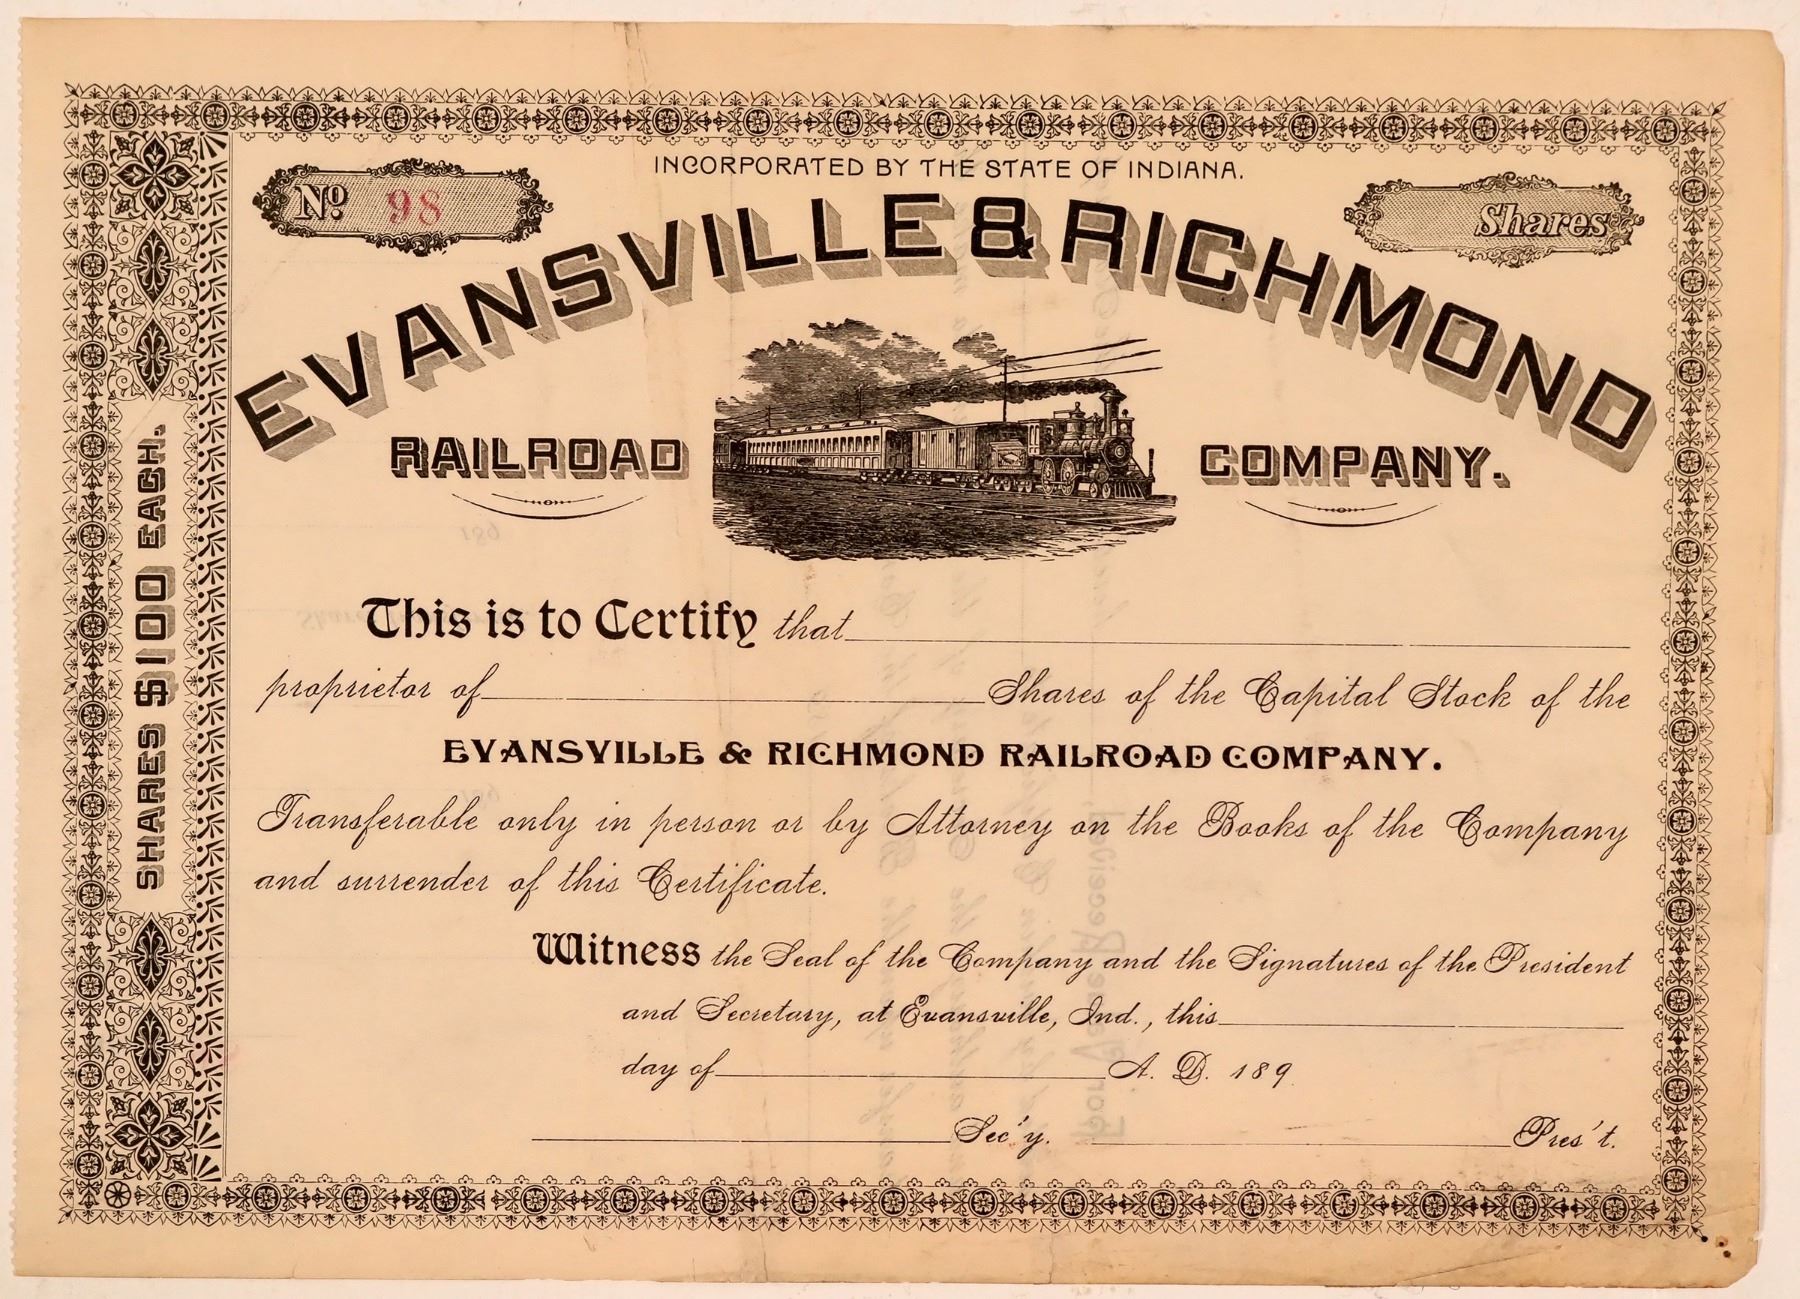 INCORPORATED BY THE STATE OF INDIANA.
No 98
Shares
EVANSVILLE & RICHMOND
RAILROAD COMPANY.
SHARES $100 EACH.
This is to Certify that
proprietor of Shares of the Capital Stock of the
EVANSVILLE & RICHMOND RAILROAD COMPANY.
Transferable only in person or by Attorney on the Books of the Company
and surrender of this Certificate.
Witness the Seal of the Company and the Signatures of the President
and Secretary, at Evansville, Ind., this
day of A. D. 189
Sec'y. Pres't.